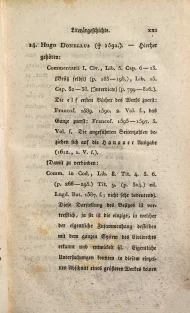 Literärgeschichte. XXI
24. Hugo Donellus († 1591.) — Hierher
gehören:
Commentarii I. Civ., Lib. 5. Cap. 6—13.
(Besitz selbst) (p. 183—198.), Lib. 15.
Cap. 32—38. (Interdicte) (p. 799—808.).
Die elf ersten Bücher des Werks zuerst:
Francof. 1589. 1590. 2. Vol. f., das
Ganze zuerst: Francof. 1595—1597. 5.
Vol. f. Die angeführten Seitenzahlen be-
ziehen sich auf die Hanauer Ausgabe
(1612., 1. V. f.),
(Damit zu verbinden:
Comm. in Cod., Lib. 8. Tit. 4. 5. 6.
ed.
Lugd. Bat. 1587. f.; nicht sehr bedeutend).
Diese Darstellung des Besitzes ist vor-
trefflich, ja sie ist die einzige, in welcher
der eigentliche Zusammenhang desselben
mit dem ganzen System des Civilrechtes
erkannt und entwickelt ist. Eigentliche
Untersuchungen konnten in diesem einzel-
nen Abschnitt eines größeren Werkes keinen